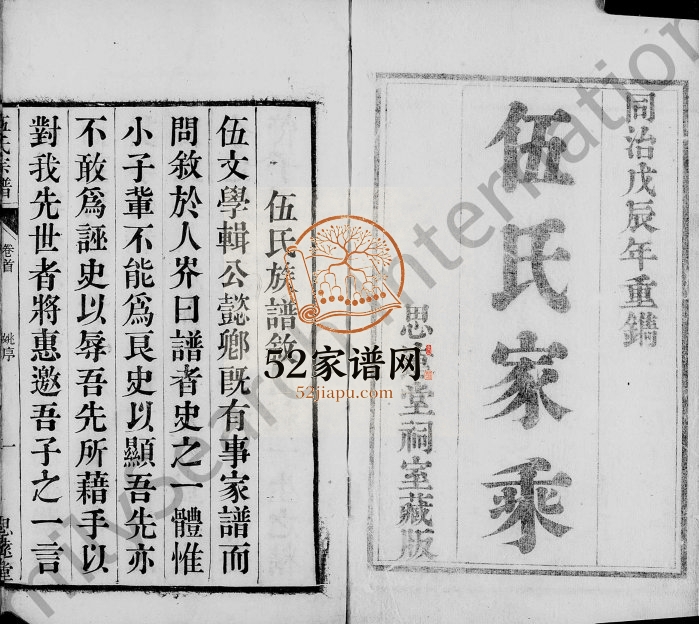 同治戊辰年重鐫
伍氏家乘
思本堂祠室藏版
伍氏族譜敘
伍文學輯公懿卿旣有事家譜而
問敘於人岕曰譜者史之一體惟
小子輩不能爲良史以顯吾先亦
不敢爲誣史以辱吾先所藉手以
對我先世者將惠邀吾子之一言
伍氏宗譜
卷首
姚序
一
思
堂
52家谱网
52jiapu.com